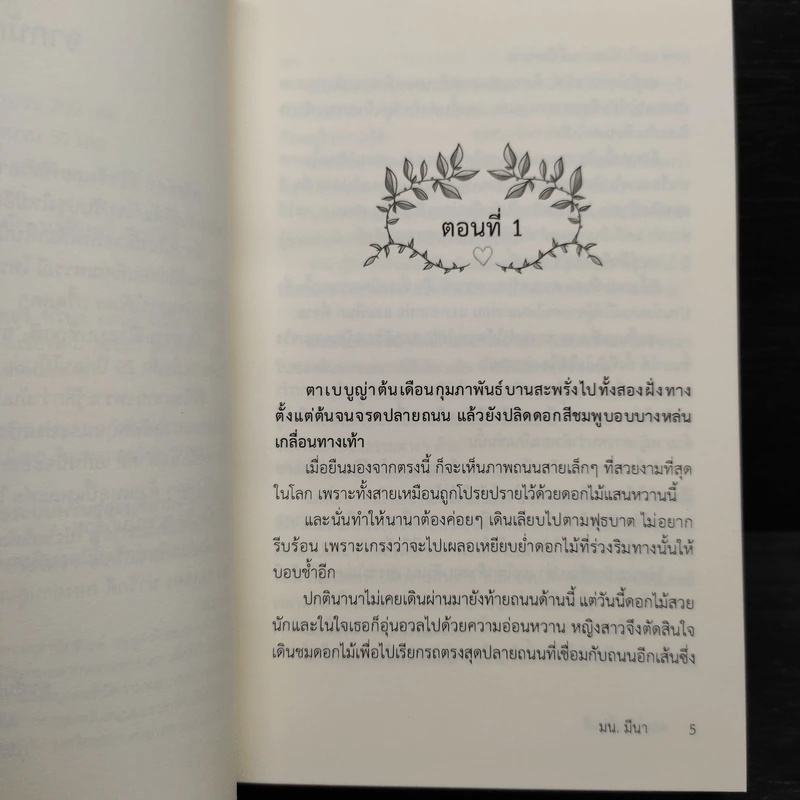 ตอนที่ 1
ตาเบบูญ่าต้นเดือนกุมภาพันธ์บานสะพรั่งไปทั้งสองฝั่งทาง
ตั้งแต่ต้นจนจรดปลายถนน แล้วยังปลิดดอกสีชมพูบอบบางหล่น
เกลื่อนทางเท้า
เมื่อยืนมองจากตรงนี้ ก็จะเห็นภาพถนนสายเล็กๆ ที่สวยงามที่สุด
ในโลก เพราะทั้งสายเหมือนถูกโปรยปรายไว้ด้วยดอกไม้แสนหวานนี้
และนั่นทำให้นานาต้องค่อยๆ เดินเลียบไปตามฟุธบาต ไม่อยาก
รีบร้อน เพราะเกรงว่าจะไปเผลอเหยียบย่ำดอกไม้ที่ร่วงริมทางนั้นให้
บอบช้ำอีก
ปกตินานาไม่เคยเดินผ่านมายังท้ายถนนด้านนี้ แต่วันนี้ดอกไม้สวย
นักและในใจเธอก็อุ่นอวลไปด้วยความอ่อนหวาน หญิงสาวจึงตัดสินใจ
เดินชมดอกไม้เพื่อไปเรียกรถตรงสุดปลายถนนที่เชื่อมกับถนนอีกเส้นซึ่ง
มน. มีนา 5